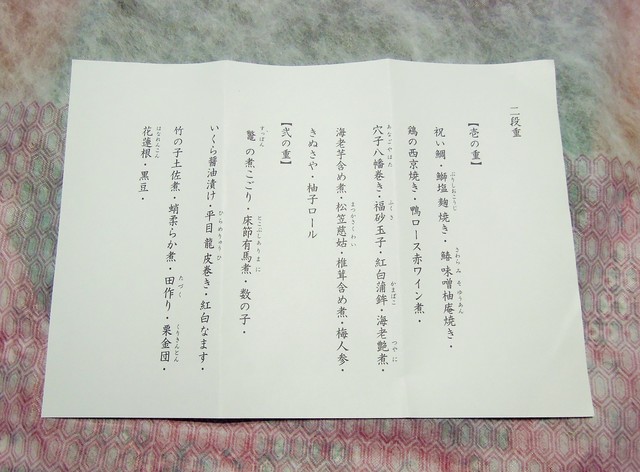 二段重
【壱の重】
祝い鯛・鰤塩麹焼き・鰆味噌柚庵焼き・
鶏の西京焼き・鴨ロース赤ワイン煮・
穴子八幡巻き・福砂玉子・紅白蒲鉾・海老艶煮・
海老芋含め煮・松笠慈姑・椎茸含め煮・梅人参・
きぬさや・柚子ロール
【弐の重】
鼈の煮こごり・床節有馬煮・数の子・
いくら醤油漬け・平目龍皮巻き・紅白なます・
竹の子土佐煮・蛸柔らか煮・田作り・栗金団・
花蓮根・黒豆・